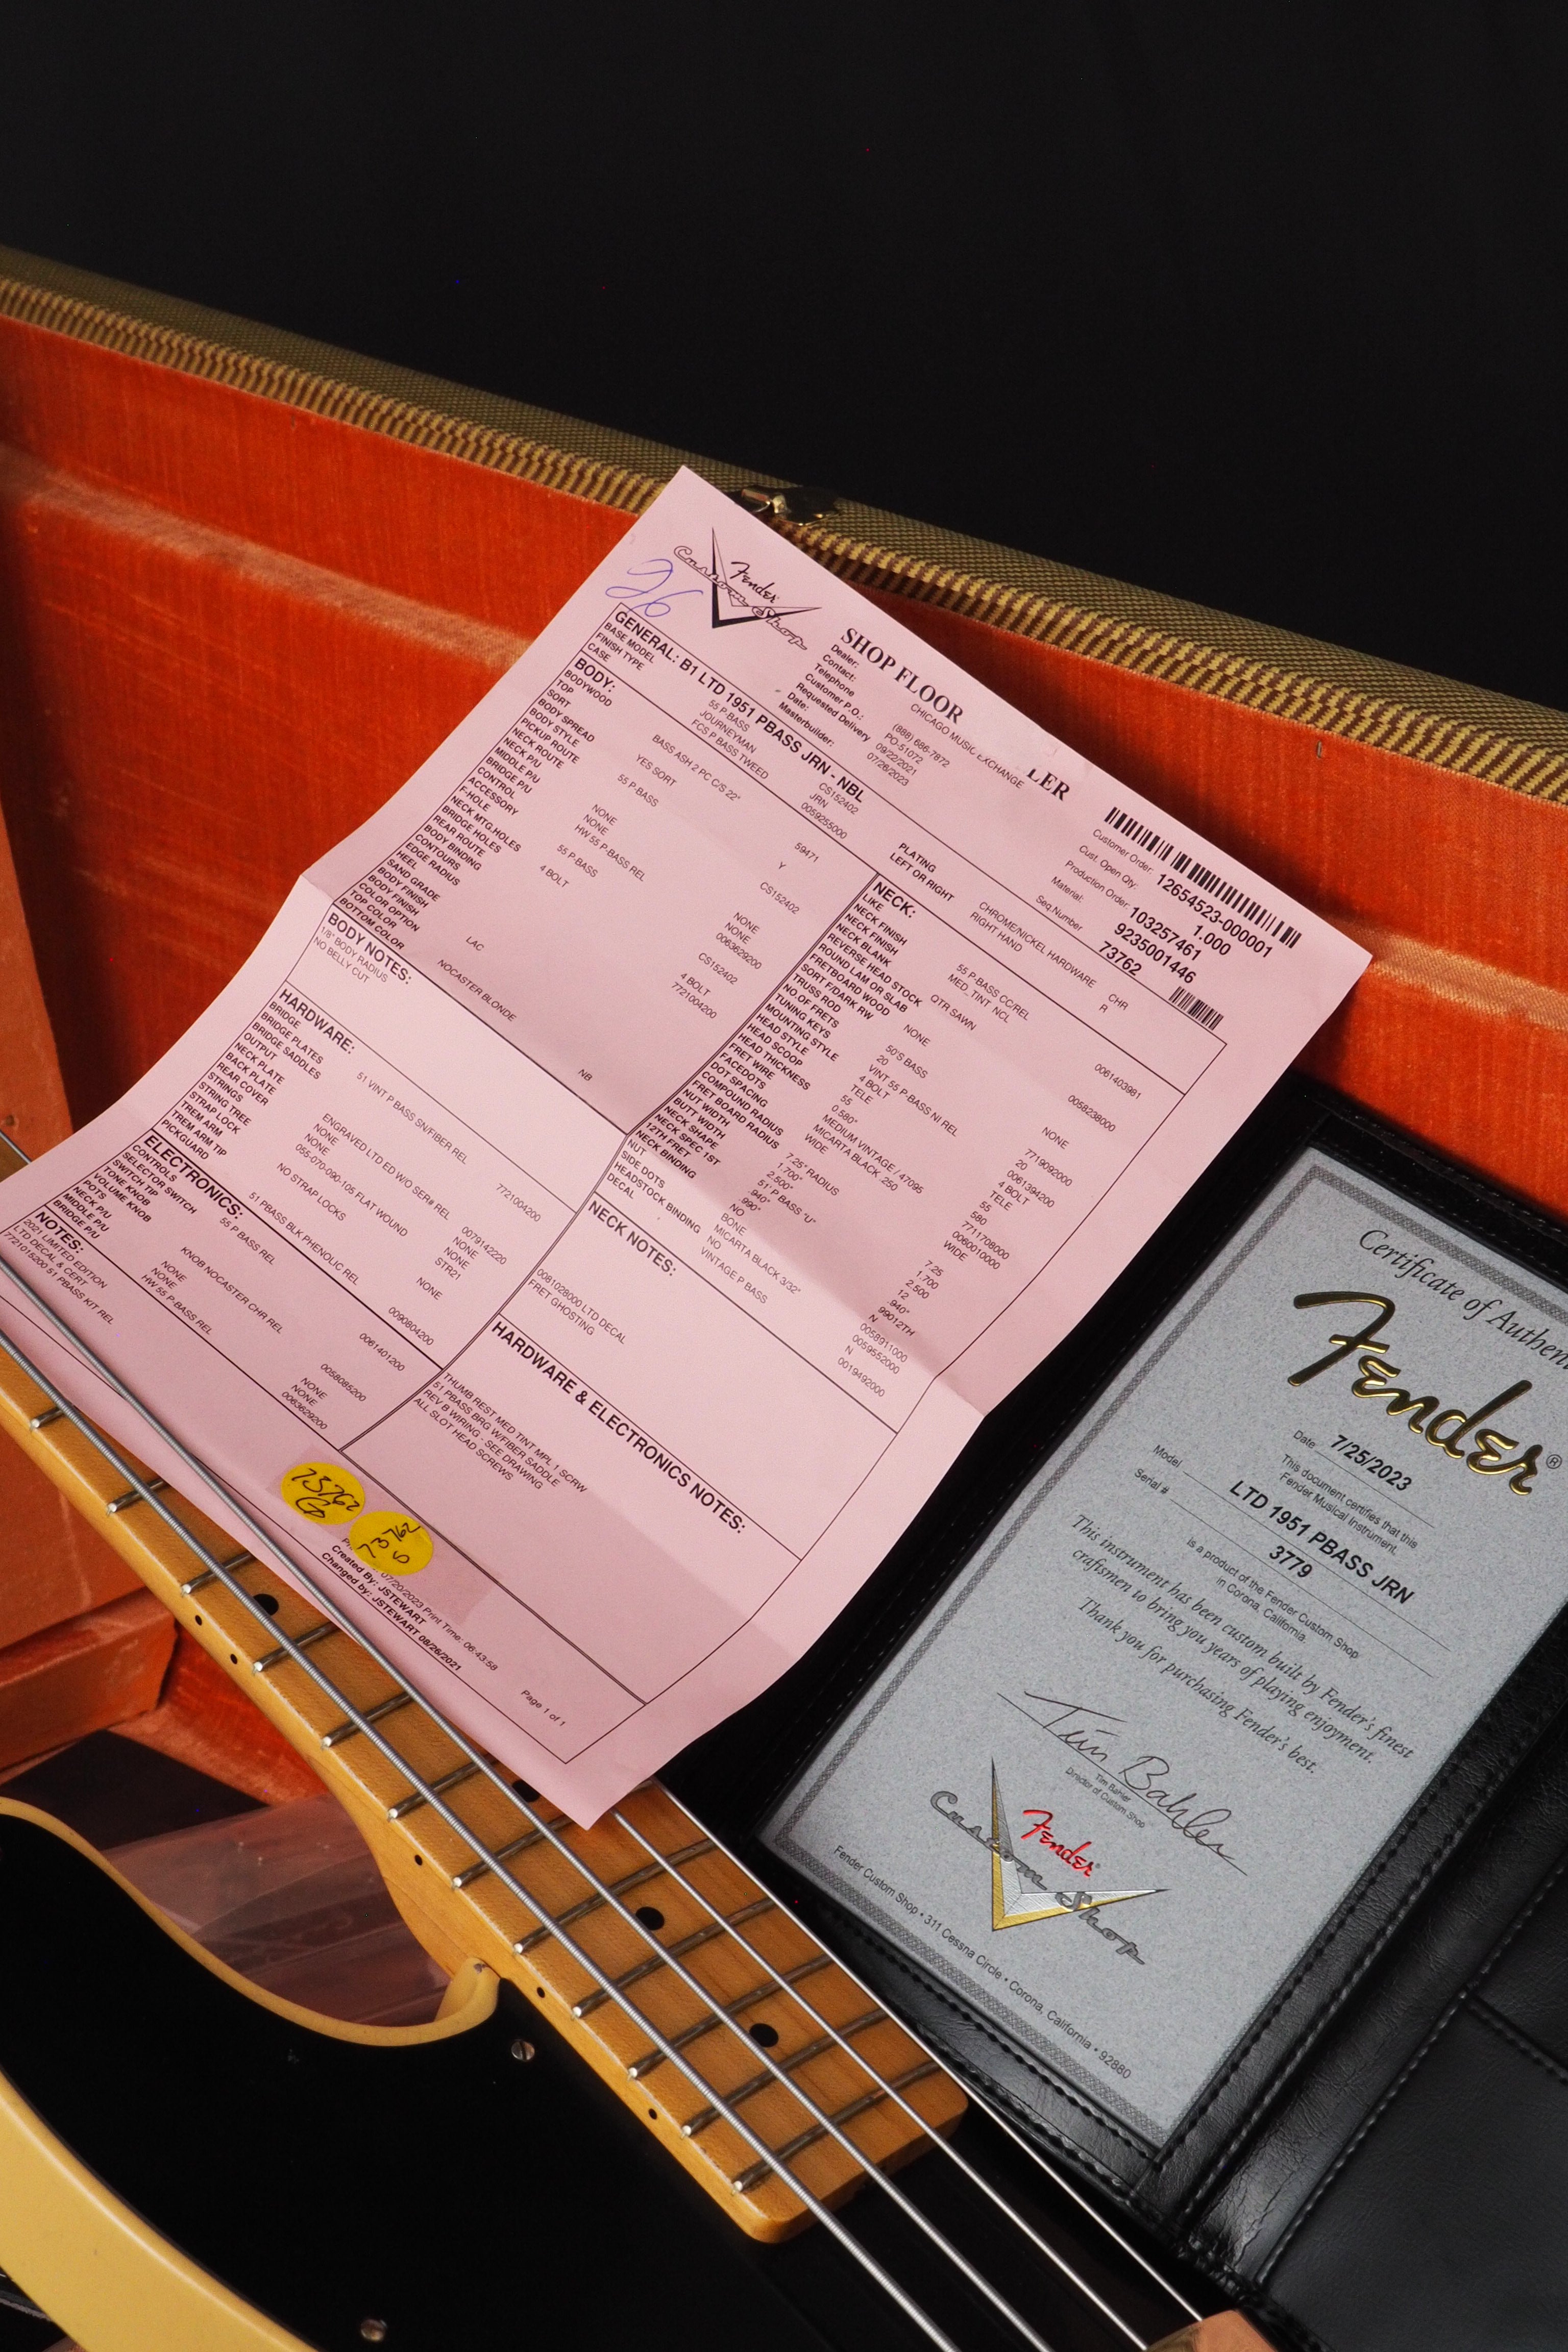 26
Fender
Custom Shop
SHOP FLOOR LER
Dealer: CHICAGO MUSIC EXCHANGE
Contact:
Telephone (888) 686-7872
Customer P.O.: PO-51072
Requested Delivery 09/22/2021
Date: 07/26/2023
Masterbuilder:
Customer Order: 12654523-000001
Cust. Open Qty: 1.000
Production Order: 103257461
Material: 9235001446
Seq.Number 73762
GENERAL: B1 LTD 1951 PBASS JRN - NBL
BASE MODEL 55 P-BASS CS152402
FINISH TYPE JOURNEYMAN JRN
CASE FCS P BASS TWEED 0059255000
PLATING CHROME/NICKEL HARDWARE CHR
LEFT OR RIGHT RIGHT HAND R
BODY:
BODYWOOD BASS ASH 2 PC C/S 22" 59471
TOP
SORT YES SORT Y
BODY SPREAD
BODY STYLE 55 P-BASS CS152402
PICKUP ROUTE
NECK ROUTE
NECK P/U NONE NONE
MIDDLE P/U NONE NONE
BRIDGE P/U HW 55 P-BASS REL 0063629200
CONTROL 55 P-BASS CS152402
ACCESSORY
F-HOLE
NECK MTG.HOLES 4 BOLT 4 BOLT
BRIDGE HOLES 7721004200
REAR ROUTE
BODY BINDING
CONTOURS
EDGE RADIUS
HEEL
SAND GRADE
BODY FINISH LAC
BODY FINISH
COLOR OPTION
TOP COLOR NOCASTER BLONDE NB
BOTTOM COLOR
BODY NOTES:
1/8" BODY RADIUS
NO BELLY CUT
HARDWARE:
BRIDGE 51 VINT P BASS SN/FIBER REL 7721004200
BRIDGE PLATES
BRIDGE SADDLES
OUTPUT
NECK PLATE ENGRAVED LTD ED W/O SER# REL 0079142220
BACK PLATE NONE NONE
REAR COVER NONE NONE
STRINGS 055-070-090-105 FLAT WOUND STR21
STRING TREE
STRAP LOCK NO STRAP LOCKS NONE
TREM ARM
TREM ARM TIP
PICKGUARD 51 PBASS BLK PHENOLIC REL 0090804200
ELECTRONICS:
CONTROLS 55 P BASS REL 0061401200
SELECTOR SWITCH
SWITCH TIP
TONE KNOB KNOB NOCASTER CHR REL 0058085200
VOLUME KNOB
POTS
NECK P/U NONE NONE
MIDDLE P/U NONE NONE
BRIDGE P/U HW 55 P-BASS REL 0063629200
NOTES:
2021 LIMITED EDITION
LTD DECAL & CERT
7721015200 51 PBASS KIT REL
NECK:
LIKE 55 P-BASS CC/REL 0061403981
NECK FINISH MED_TINT NCL
NECK FINISH
NECK BLANK QTR SAWN 0058238000
REVERSE HEAD STOCK
ROUND LAM OR SLAB NONE NONE
FRETBOARD WOOD
SORT F/DARK RW
TRUSS ROD 50'S BASS 7719092000
NO.OF FRETS 20 20
TUNING KEYS VINT 55 P-BASS NI REL 0061394200
MOUNTING STYLE 4 BOLT 4 BOLT
HEAD STYLE TELE TELE
HEAD SCOOP 55 55
HEAD THICKNESS 0.580" 580
FRET WIRE MEDIUM VINTAGE / 47095 7711708000
FACEDOTS MICARTA BLACK .250 0060010000
DOT SPACING WIDE WIDE
COMPOUND RADIUS
FRET BOARD RADIUS 7.25" RADIUS 7.25
NUT WIDTH 1.700" 1.700
BUTT WIDTH 2.500" 2.500
NECK SHAPE 51' P BASS 'U' 12
NECK SPEC 1ST .940" .940"
12TH FRET .990" .99012TH
NECK BINDING NO N
NUT BONE 0058911000
SIDE DOTS MICARTA BLACK 3/32" 0059552000
HEADSTOCK BINDING NO N
DECAL VINTAGE P BASS 0019492000
NECK NOTES:
0081028000 LTD DECAL
FRET GHOSTING
HARDWARE & ELECTRONICS NOTES:
THUMB REST MED TINT MPL 1 SCRW
51 PBASS BRG W/FIBER SADDLE
REV B WIRING - SEE DRAWING
ALL SLOT HEAD SCREWS
73762
73762
S
07/20/2023 Print Time: 06:43:58
Created By: JSTEWART
Changed by: JSTEWART 08/26/2021
Page 1 of 1
Certificate of Authen
Fender®
Date 7/25/2023
This document certifies that this
Fender Musical Instrument,
Model LTD 1951 PBASS JRN
Serial # 3779
is a product of the Fender Custom Shop
in Corona, California.
This instrument has been custom built by Fender's finest
craftsmen to bring you years of playing enjoyment.
Thank you for purchasing Fender's best.
Tim Bahler
Tim Bahler
Director of Custom Shop
Fender
Custom Shop
Fender Custom Shop • 311 Cessna Circle • Corona, California • 92880